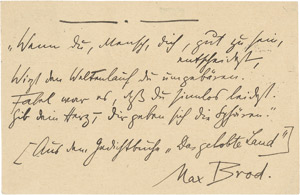 "Wenn du, Mensch, dich, gut zu sein,
entscheidest,
Wirst den Weltenlauf du umgebären.
Fabel war es, daß du sinnlos leidest.
Gib dein Herz, – dir geben sich die Sphären."
[Aus dem Gedichtbuche "Das gelobte Land"]
Max Brod.